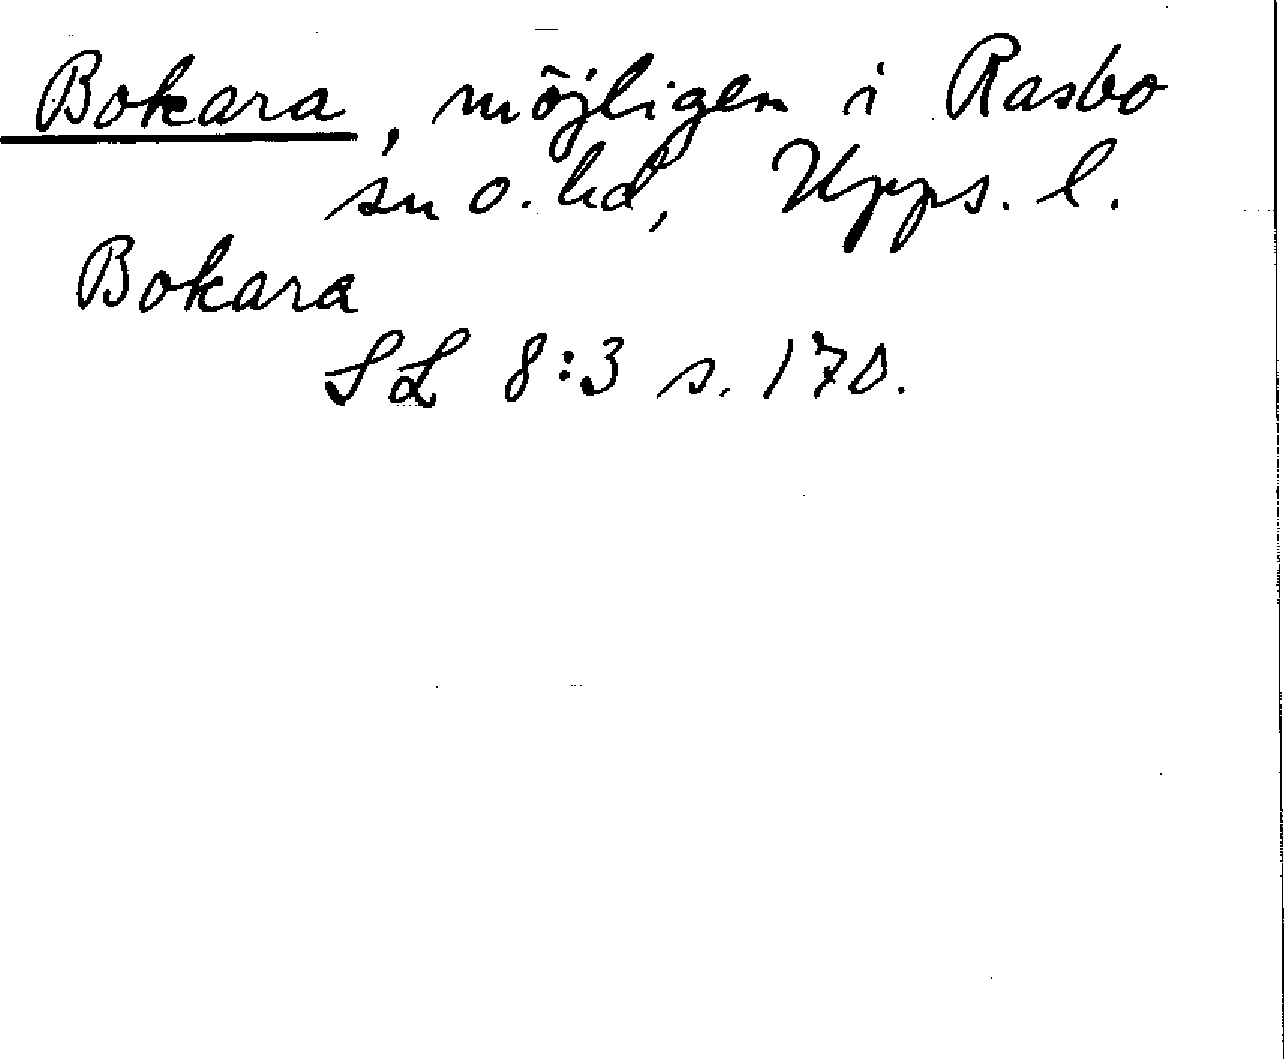 Bokara, möjligen i Rasbo
sn o. hd, Upps. l.
Bokara
SL 8:3 s. 170.